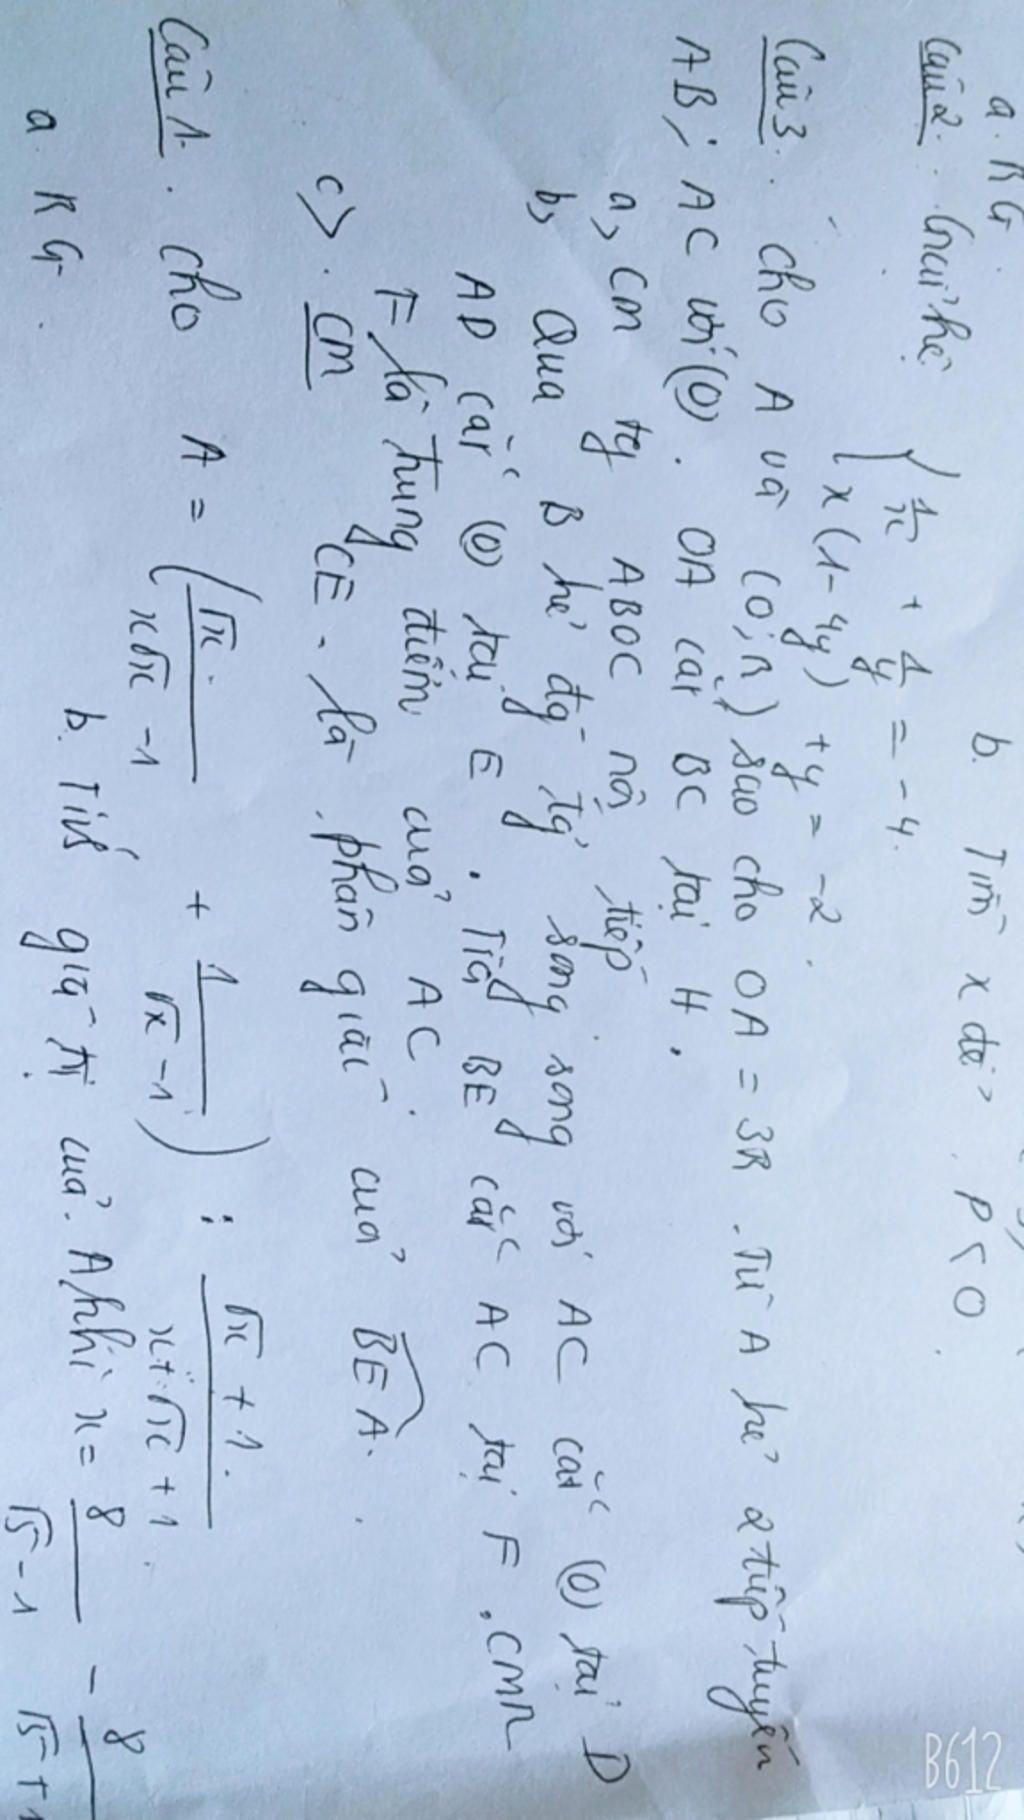 a. RG. b. Tìm x để P < 0
Câu 2. Giải hệ { 1/x + 1/y = -4.
x(1-4y) + y = -2.
Câu 3. Cho A và (O;R) sao cho OA = 3R. Từ A kẻ 2 tiếp tuyến
AB; AC với (O). OA cắt BC tại H.
a, Cm tg ABOC nội tiếp
b, Qua B kẻ đg tg song song với AC cắt (O) tại D
AD cắt (O) tại E. Tia BE cắt AC tại F. CMR
F là trung điểm của AC.
c>. CM CE là phân giác của BEA.
Câu 1. Cho A = (√x / (x√x - 1) + 1 / (√x - 1)) : (√x + 1) / (x + √x + 1).
a RG. b. Tính giá trị của A khi x = 8 / (√5 - 1) - 8 / (√5 + 1
B612